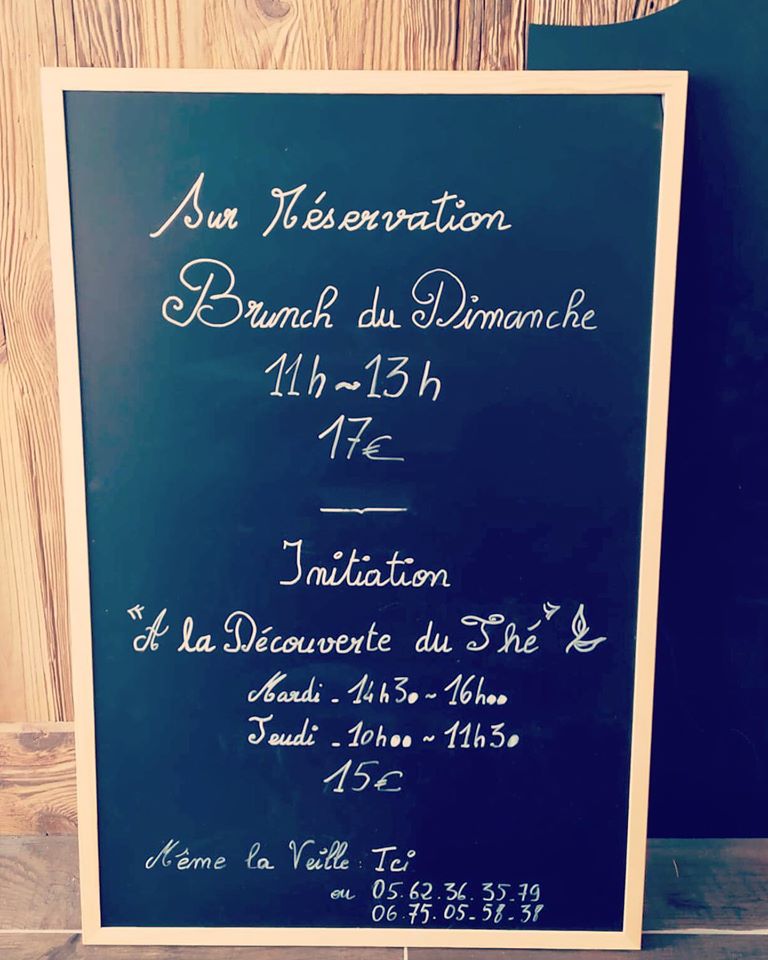 Sur Réservation
Brunch du Dimanche
11h~13h
17€
Initiation
"A la Découverte du Thé"
Mardi - 14h30 ~ 16h00
Jeudi - 10h00 ~ 11h30
15€
Même la Veille : Ici
ou 05.62.36.35.79
06.75.05-58-38